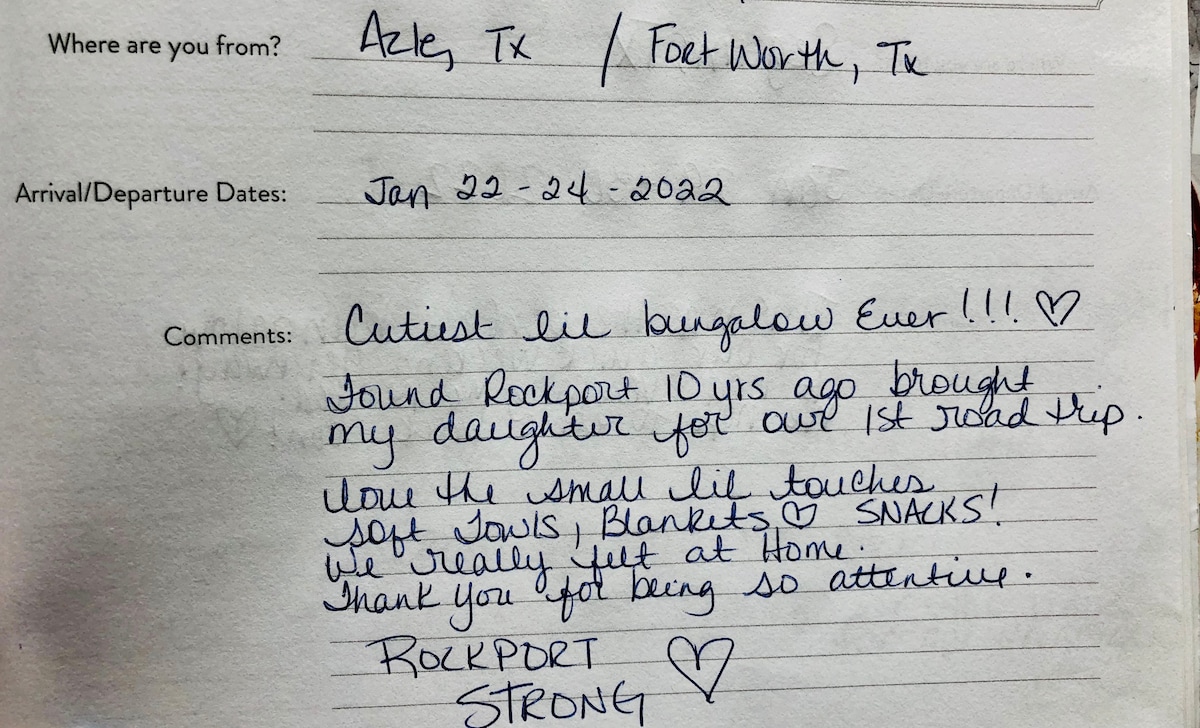 Where are you from? Azle, Tx / Fort Worth, Tx
Arrival/Departure Dates: Jan 22-24-2022
Comments: Cutiest lil bungalow Ever!!! ♡
Found Rockport 10 yrs ago brought
my daughter for our 1st road trip.
love the small lil touches
soft Towls, Blankets ♡ SNACKS!
We really felt at Home.
Thank you for being so attentive.
ROCKPORT ♡
STRONG